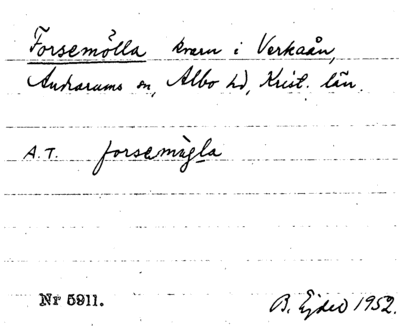 Forsemölla kvarn i Verkaån,
Andrarums sn, Albo hd, Krist. län.
A.T. forsemø̀gla
Nr 5911.
B. Ejder 1952.